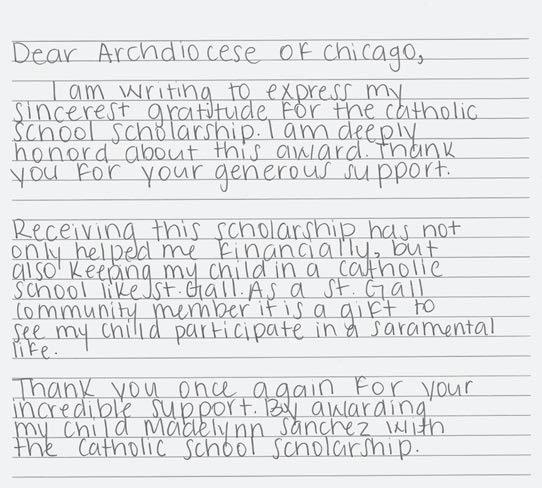 Dear Archdiocese of Chicago,
I am writing to express my
sincerest gratitude for the catholic
school scholarship. I am deeply
honord about this award. Thank
you for your generous support.
Receiving this scholarship has not
only helped me financially, but
also keeping my child in a catholic
school like St. Gall. As a St. Gall
community member it is a gift to
see my child participate in a saramental
life.
Thank you once again for your
incredible support. By awarding
my child Madelynn Sanchez with
the catholic school scholarship.